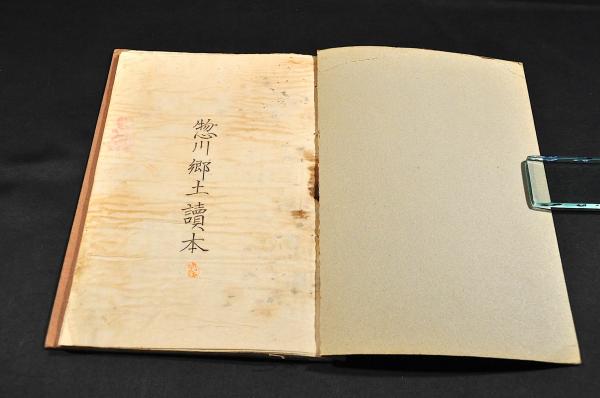 惣川郷土讀本